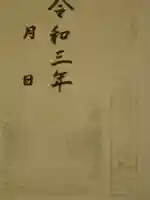 令和三年
月日